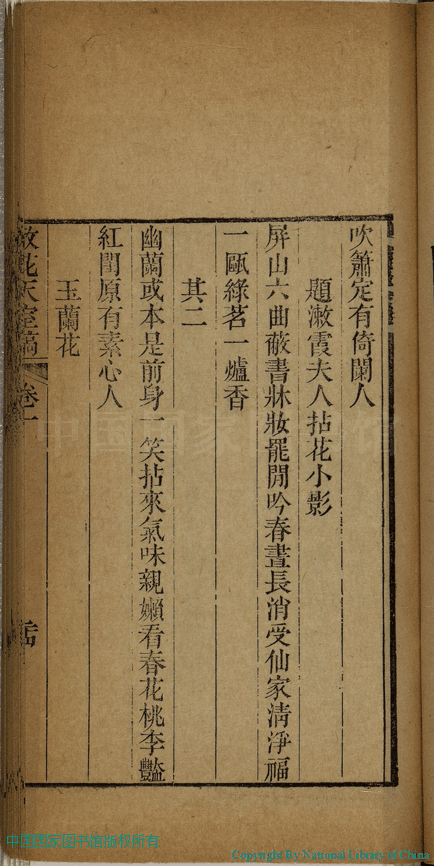 吹簫定有倚闌人
題漱霞夫人拈花小影
屏山六曲蔽書牀妝罷閒吟春晝長消受仙家淸淨福
一甌綠茗一爐香
其二
幽蘭或本是前身一笑拈來氣味親嬾看春花桃李豔
紅閨原有素心人
玉蘭花
散花天室稿
卷一
中国国家图书馆版权所有
Copyright By National Library of China